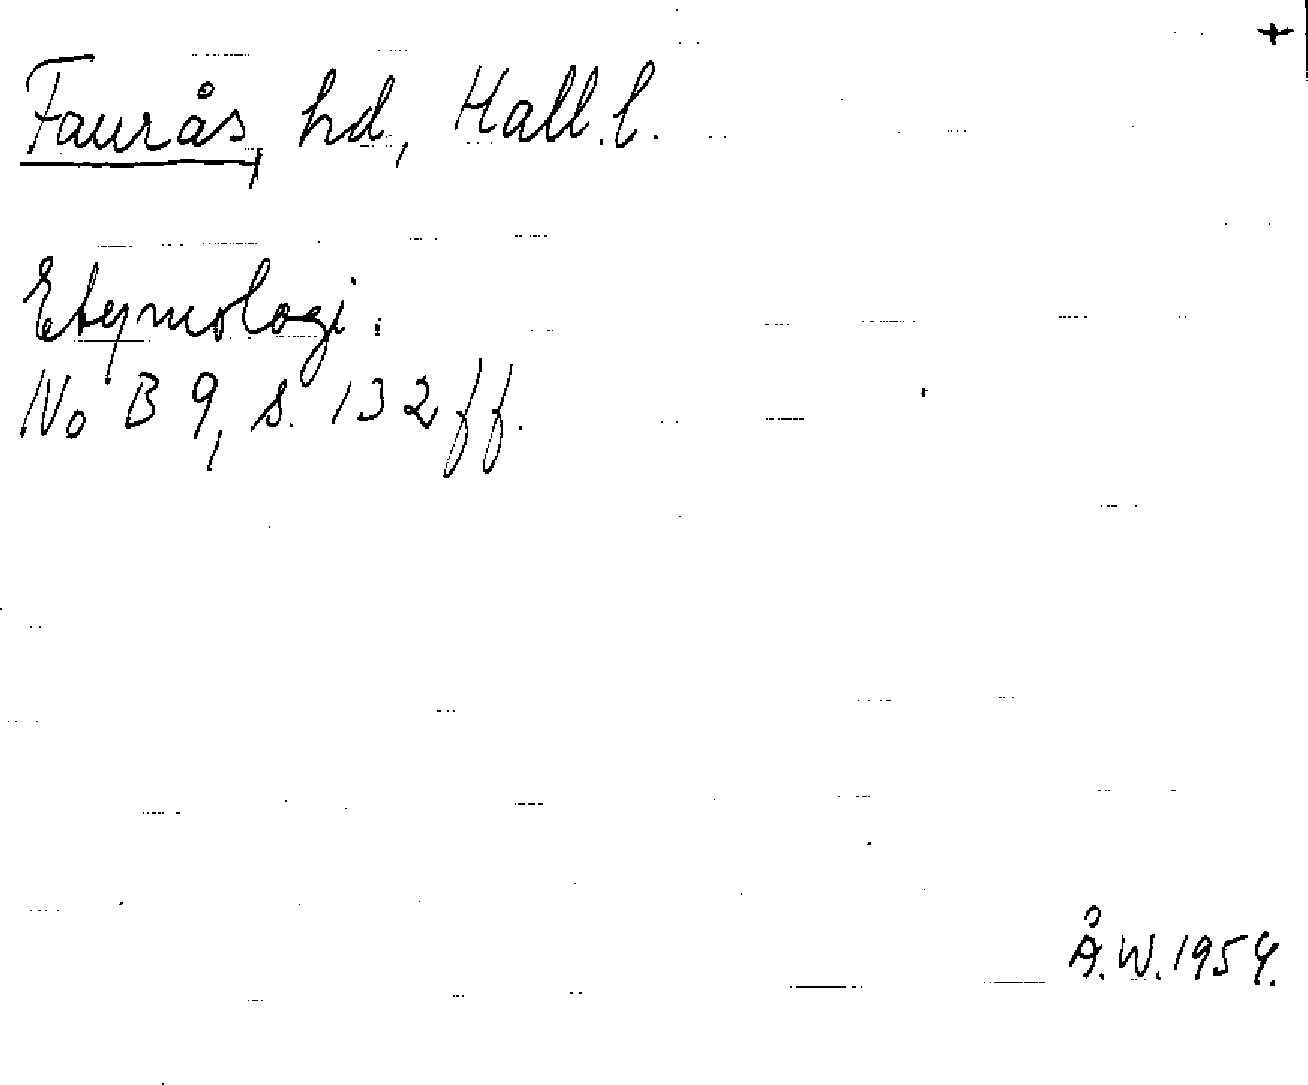 +
Faurås, hd, Hall. l.
Etymologi.
No B 9, s. 132 ff.
Å. W. 1954.